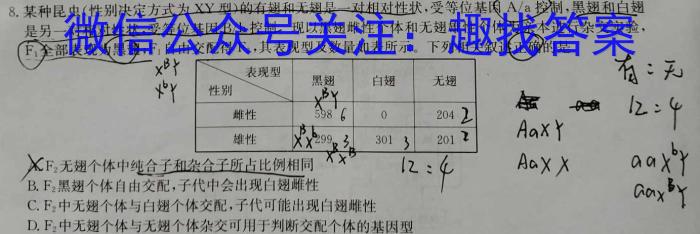 8.某种昆虫(性别决定方式为XY型)的有翅和无翅是一对相对性状,受等位基因A/a控制,黑翅和白翅
是另一对相对性状,受等位基因B/b控制,现以黑翅雌性个体和无翅雄性个体为亲本进行杂交实验,
微信公众号关注:趣找答案
F₁全部表现为黑翅,F₁自由交配得F₂,其表现型及数量如表所示。下列相关叙述正确的是
X^BY
X^bY
有:无
12=4
表现型
性别
黑翅 白翅 无翅
X^BY
雌性 598 6 0 204 2
雄性 299 3 301 3 201 2
X^BX^b
X^BX^B
12:4
AaXY
AaXX
aaX^bY
aaX^BY
A.F₂无翅个体中纯合子和杂合子所占比例相同
B.F₂黑翅个体自由交配,子代中会出现白翅雌性
C.F₂中无翅个体与白翅个体交配,子代可能出现白翅雌性
D.F₂中无翅个体与无翅个体杂交可用于判断交配个体的基因型